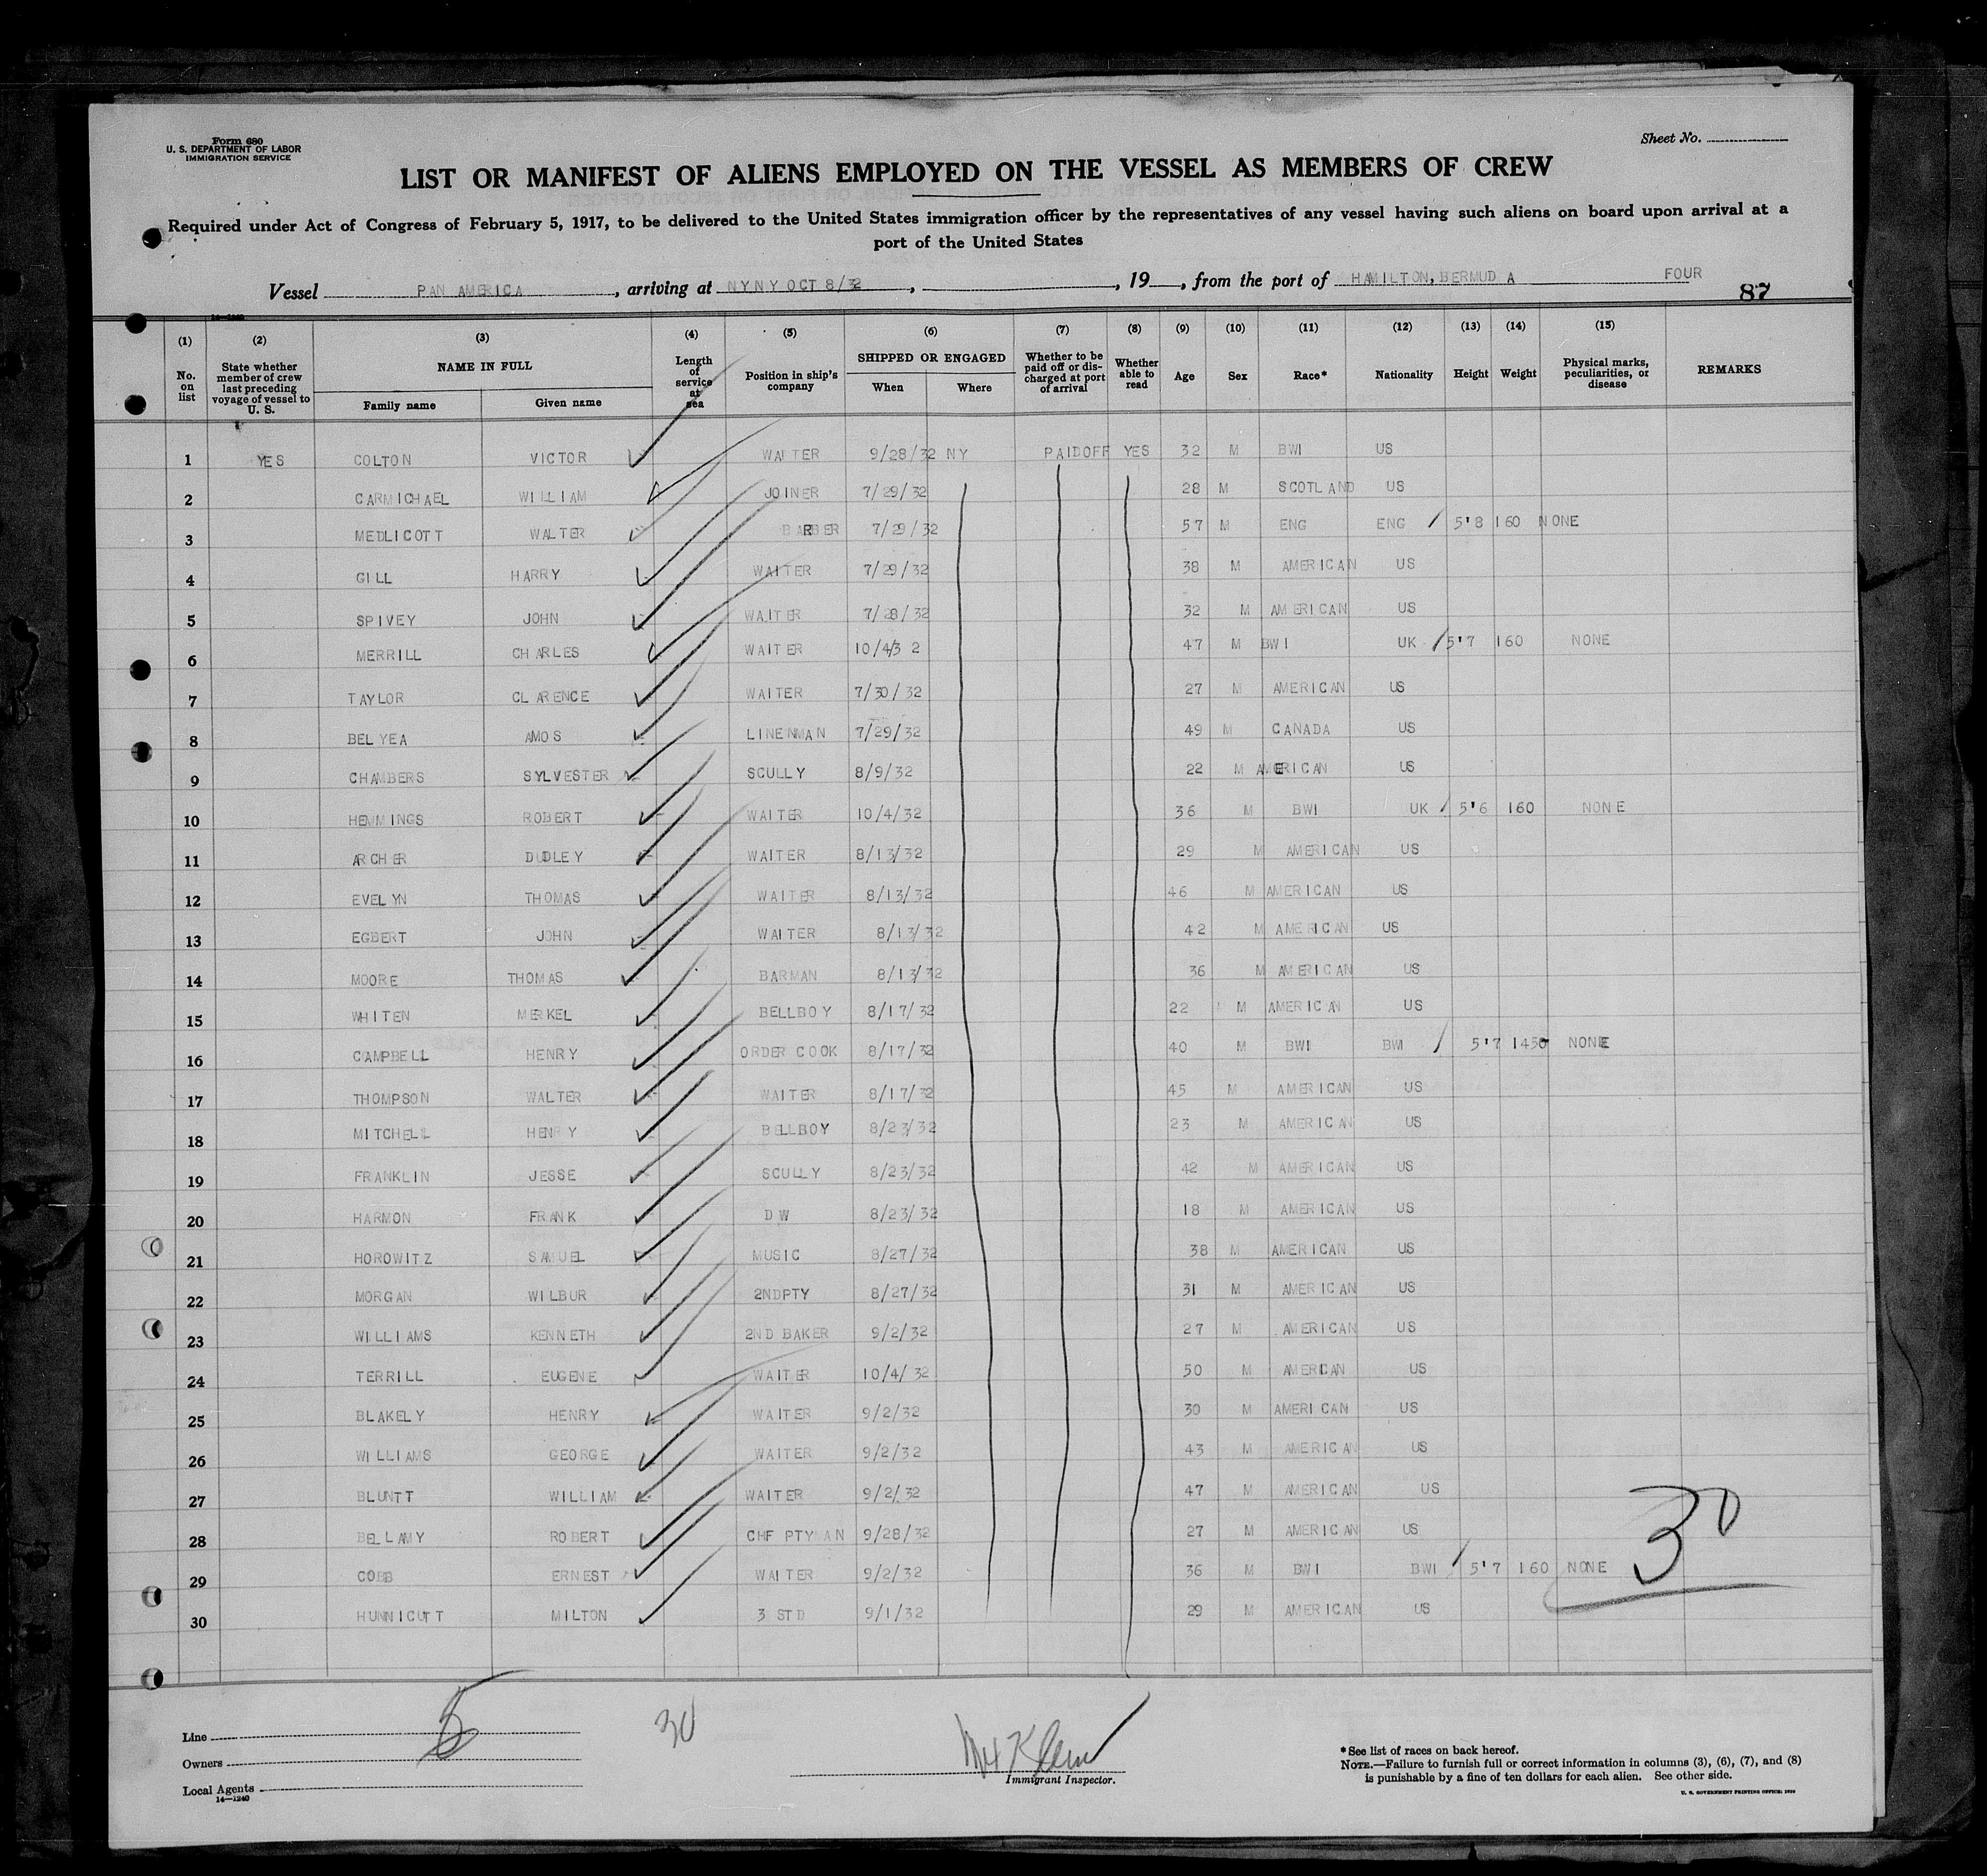 Form 680
U. S. DEPARTMENT OF LABOR
IMMIGRATION SERVICE
Sheet No.
LIST OR MANIFEST OF ALIENS EMPLOYED ON THE VESSEL AS MEMBERS OF CREW
Required under Act of Congress of February 5, 1917, to be delivered to the United States immigration officer by the representatives of any vessel having such aliens on board upon arrival at a
port of the United States
Vessel PAN AMERICA, arriving at NYNY OCT 8/32, , 19 , from the port of HAMILTON, BERMUDA FOUR 87
14—1240
(1) (2) (3) (4) (5) (6) (7) (8) (9) (10) (11) (12) (13) (14) (15)
No. on list
State whether member of crew last preceding voyage of vessel to U. S.
NAME IN FULL
Family name Given name
Length of service at sea
Position in ship's company
SHIPPED OR ENGAGED
When Where
Whether to be paid off or discharged at port of arrival
Whether able to read
Age Sex Race* Nationality Height Weight
Physical marks, peculiarities, or disease
REMARKS
1 YES COLTON VICTOR WAITER 9/28/32 NY PAIDOFF YES 32 M BWI US
2 CARMICHAEL WILLIAM JOINER 7/29/32 28 M SCOTLAND US
3 MEDLICOTT WALTER BARBER 7/29/32 57 M ENG ENG / 5'8 160 NONE
4 GILL HARRY WAITER 7/29/32 38 M AMERICAN US
5 SPIVEY JOHN WAITER 7/28/32 32 M AMERICAN US
6 MERRILL CHARLES WAITER 10/4/32 47 M BWI UK / 5'7 160 NONE
7 TAYLOR CLARENCE WAITER 7/30/32 27 M AMERICAN US
8 BELYEA AMOS LINENMAN 7/29/32 49 M CANADA US
9 CHAMBERS SYLVESTER SCULLY 8/9/32 22 M AMERICAN US
10 HEMMINGS ROBERT WAITER 10/4/32 36 M BWI UK / 5'6 160 NONE
11 ARCHER DUDLEY WAITER 8/13/32 29 M AMERICAN US
12 EVELYN THOMAS WAITER 8/13/32 46 M AMERICAN US
13 EGBERT JOHN WAITER 8/13/32 42 M AMERICAN US
14 MOORE THOMAS BARMAN 8/13/32 36 M AMERICAN US
15 WHITEN MERKEL BELLBOY 8/17/32 22 M AMERICAN US
16 CAMPBELL HENRY ORDER COOK 8/17/32 40 M BWI BWI / 5'7 145 NONE
17 THOMPSON WALTER WAITER 8/17/32 45 M AMERICAN US
18 MITCHELL HENRY BELLBOY 8/23/32 23 M AMERICAN US
19 FRANKLIN JESSE SCULLY 8/23/32 42 M AMERICAN US
20 HARMON FRANK DW 8/23/32 18 M AMERICAN US
21 HOROWITZ SAMUEL MUSIC 8/27/32 38 M AMERICAN US
22 MORGAN WILBUR 2NDPTY 8/27/32 31 M AMERICAN US
23 WILLIAMS KENNETH 2ND BAKER 9/2/32 27 M AMERICAN US
24 TERRILL EUGENE WAITER 10/4/32 50 M AMERICAN US
25 BLAKELY HENRY WAITER 9/2/32 30 M AMERICAN US
26 WILLIAMS GEORGE WAITER 9/2/32 43 M AMERICAN US
27 BLUNTT WILLIAM WAITER 9/2/32 47 M AMERICAN US
28 BELLAMY ROBERT CHF PTYMAN 9/28/32 27 M AMERICAN US
29 COBB ERNEST WAITER 9/2/32 36 M BWI BWI / 5'7 160 NONE
30 HUNNICUTT MILTON 3 STD 9/1/32 29 M AMERICAN US
30
5 30
Line
Owners
Local Agents
14—1240
Immigrant Inspector.
*See list of races on back hereof.
NOTE.—Failure to furnish full or correct information in columns (3), (6), (7), and (8)
is punishable by a fine of ten dollars for each alien. See other side.